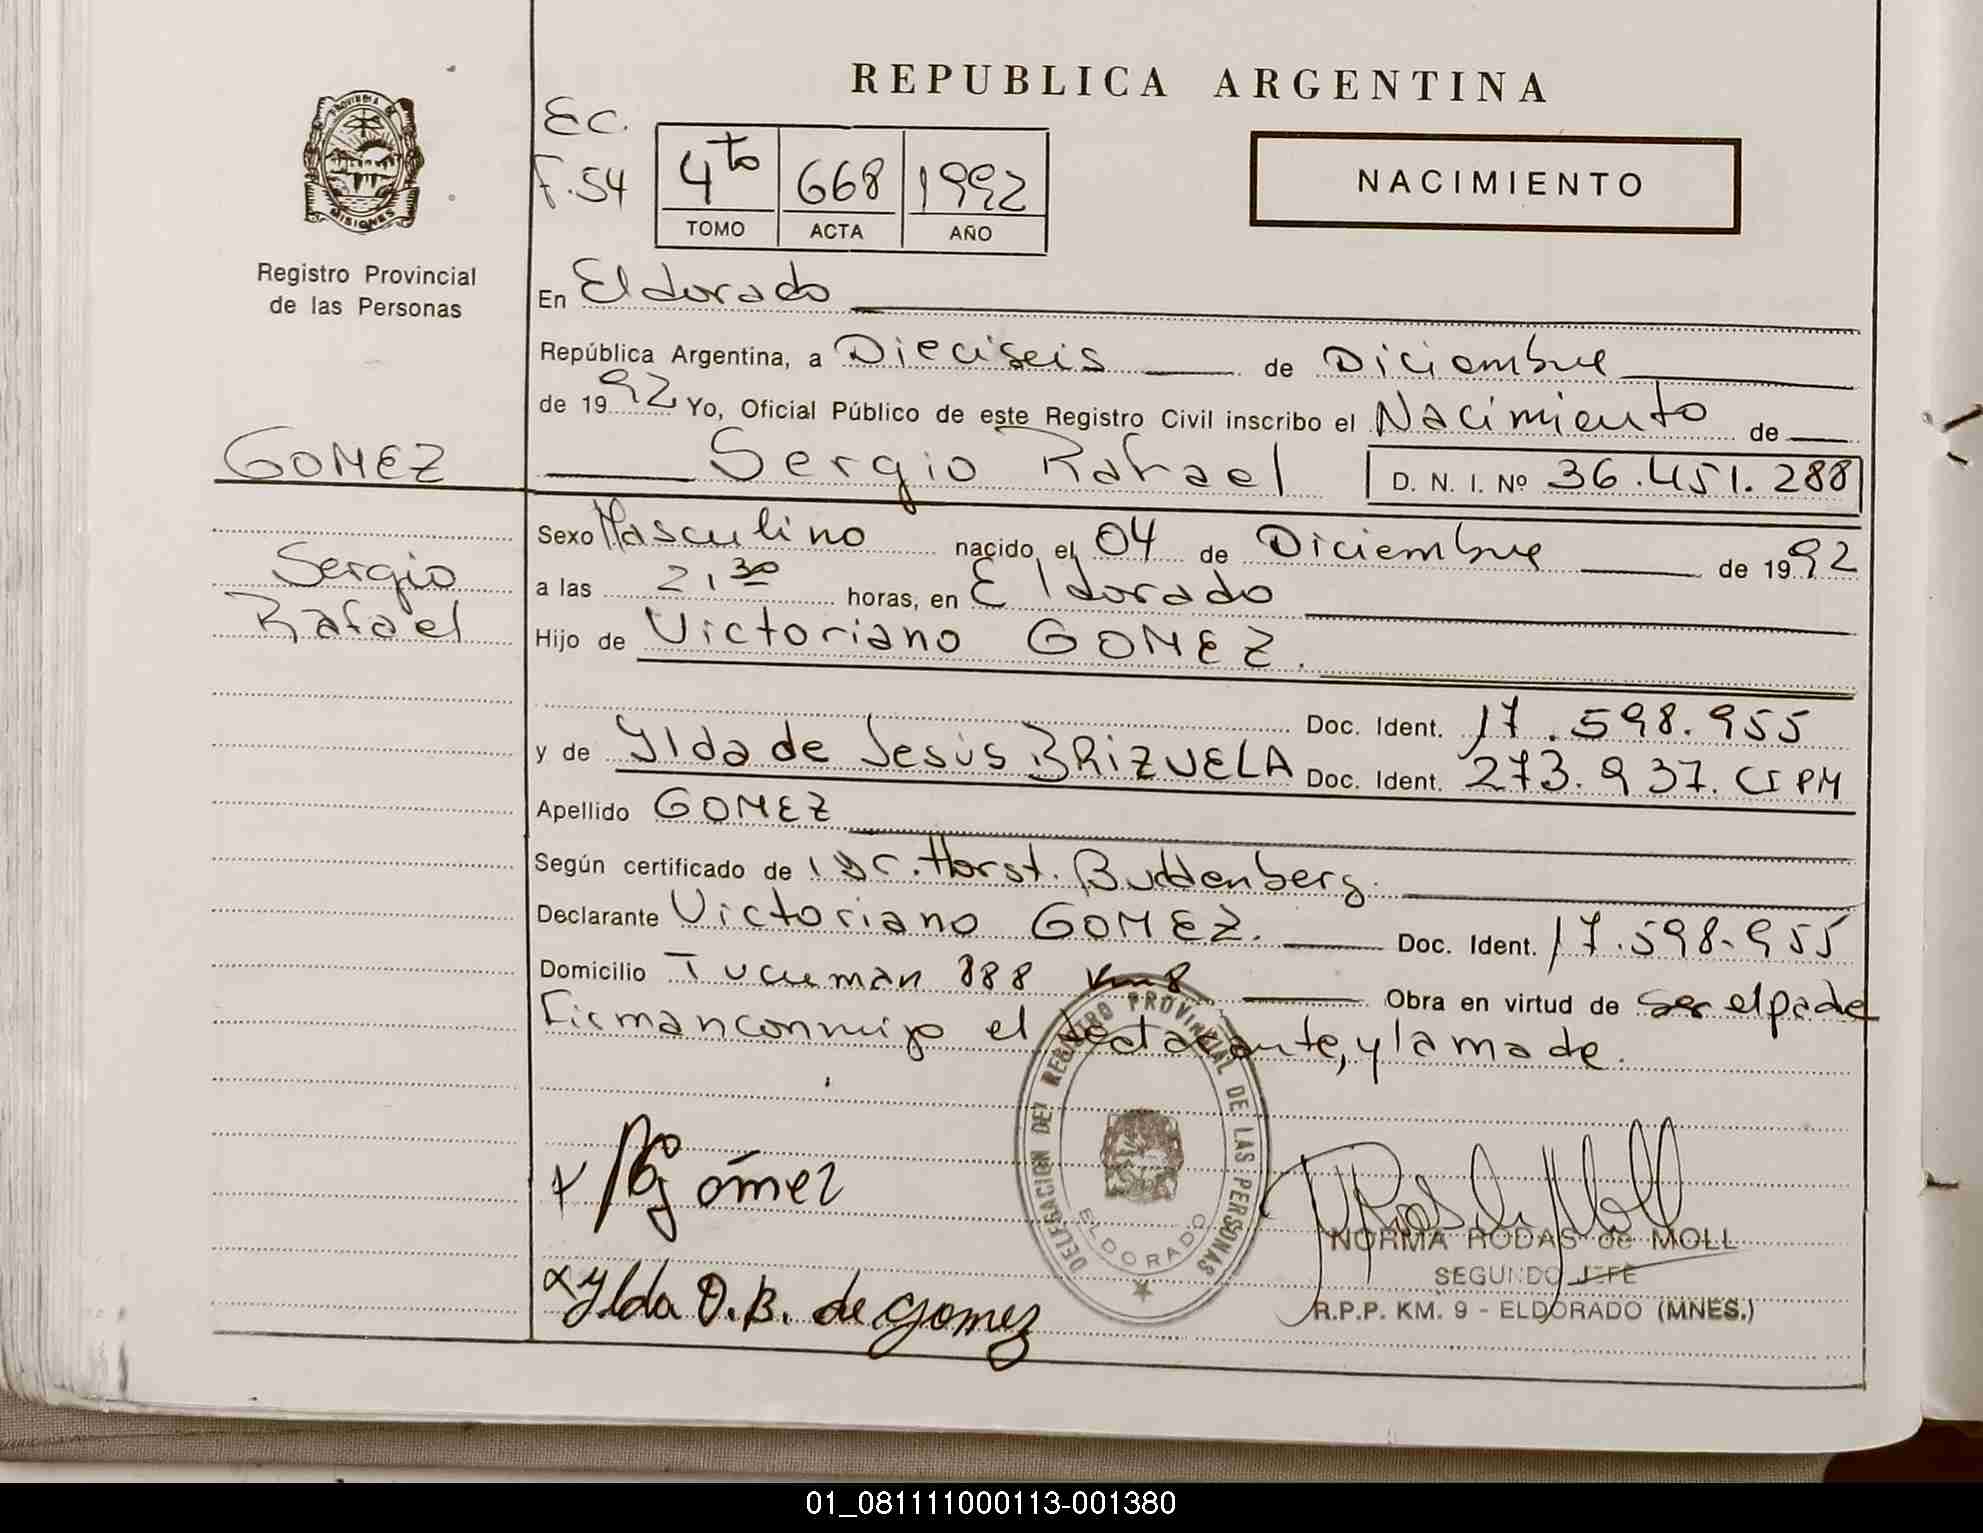 REPUBLICA ARGENTINA
PROVINCIA DE MISIONES
Registro Provincial
de las Personas
EC.
F. 54
4to 668 1992
TOMO ACTA AÑO
NACIMIENTO
En Eldorado
República Argentina, a Dieciseis de Diciembre
de 1992 Yo, Oficial Público de este Registro Civil inscribo el Nacimiento de
GOMEZ
Sergio Rafael D. N. I. Nº 36.451.288
Sergio
Rafael
Sexo Masculino nacido el 04 de Diciembre de 1992
a las 21,30 horas, en Eldorado
Hijo de Victoriano GOMEZ.
Doc. Ident. 17.598.955
y de Ylda de Jesús BRIZUELA Doc. Ident. 273.937. CI PM
Apellido GOMEZ
Según certificado de Dr. Horst. Buddenberg.
Declarante Victoriano GOMEZ. Doc. Ident. 17.598.955
Domicilio Tucuman 888 Km 8 Obra en virtud de ser el pade
Firman conmigo el declarante, y la made.
DELEGACION DEL REGISTRO PROVINCIAL DE LAS PERSONAS
ELDORADO
Gómez
Ylda D. B. de Gomez
NORMA RODAS de MOLL
SEGUNDO JEFE
R.P.P. KM. 9 - ELDORADO (MNES.)
01_081111000113-001380